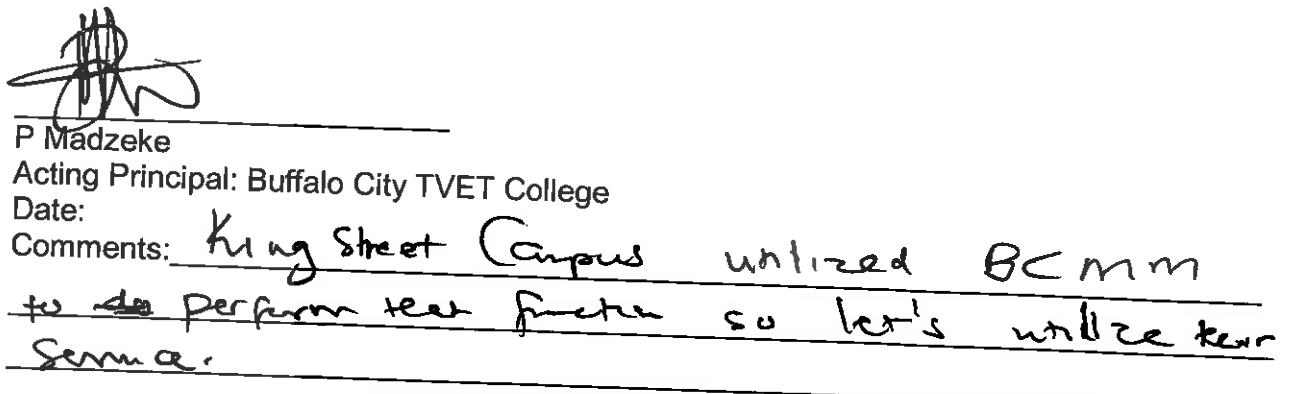 P Madzeke
Acting Principal: Buffalo City TVET College
Date:
Comments: King Street Campus utilized BCMM
to perform that function so let's utilize their
service.